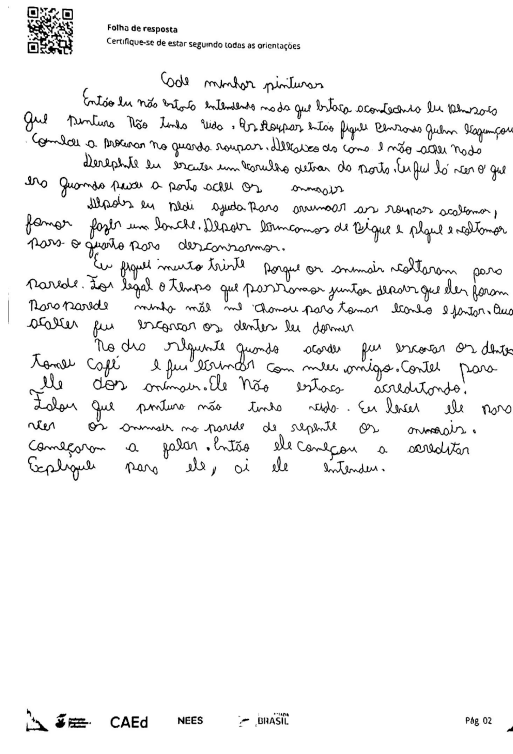 Folha de resposta
Certifique-se de estar seguindo todas as orientações
Cade minhas pinturas
Então eu não estava entendendo nada que estava acontecendo eu pensava
que pintura Não tinha vida. As Roupas então fiquei Pensando quem bagunçou
Comecei a procurar no guarda roupas. debaixo da cama e não achei nada
Derepente eu escutei um barulho detras da porta. Eu fui lá ver o que
era quando puxei a porta achei os animais
depois eu Pedi ajuda Para arrumar as roupas acabamos,
fomos fazer um lanche. Depois brincamos de Pique e pique e voltamos
para o quarto para descansarmos.
Eu fiquei muito triste porque os animais voltaram para
parede. Foi legal o tempo que passamos juntos depois que eles foram
Para parede minha mãe me chamou para tomar banho e jantar.
acabei fui escovar os dentes eu dormir
No dia siguinte quando acordei fui escovar os dentes
tomei café e fui brincar com meu amigo. Contei para
ele dos animais. Ele Não estava acreditando.
Falou que pintura não tinha vida. Eu levei ele para
ver os animais na parede de repente os animais.
começaram a falar. Então ele começou a acreditar
Expliquei para ele, ai ele entendeu.
CAEd NEES BRASIL Pág 02